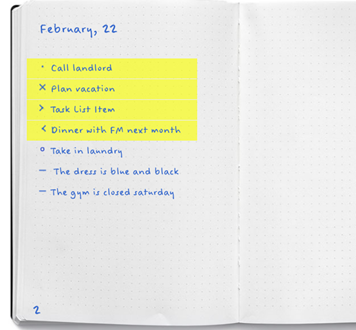 February, 22
· Call landlord
× Plan vacation
> Task List Item
< Dinner with FM next month
o Take in laundry
— The dress is blue and black
— The gym is closed saturday
2